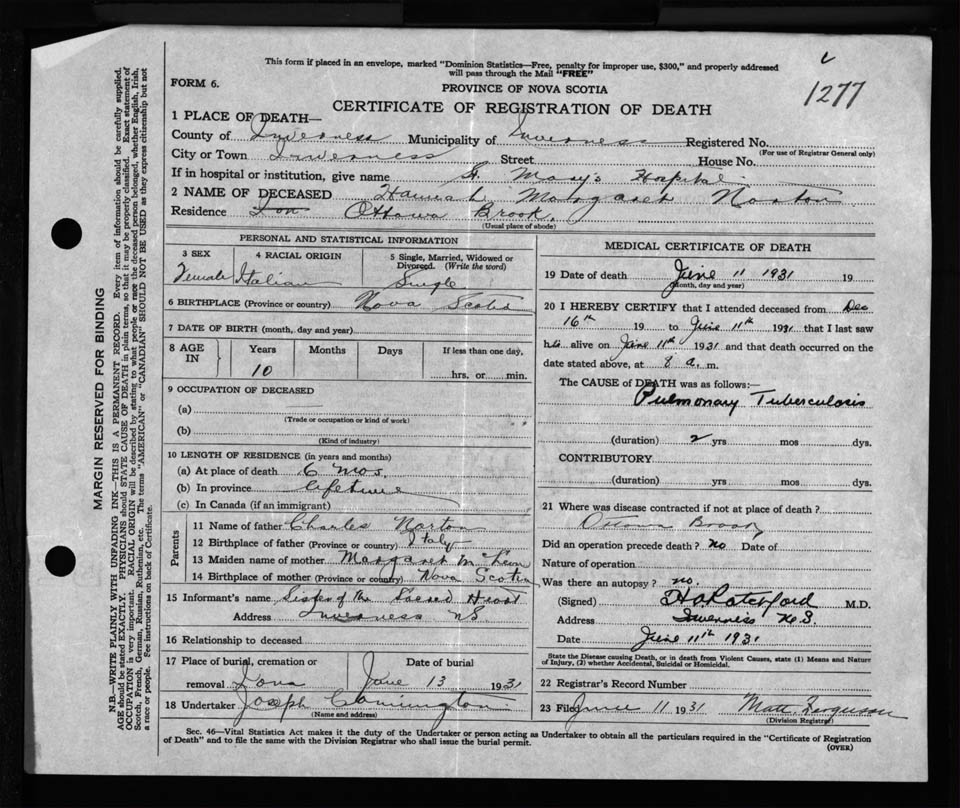 This form if placed in an envelope, marked "Dominion Statistics—Free, penalty for improper use, $300," and properly addressed
will pass through the Mail "FREE"
FORM 6.
PROVINCE OF NOVA SCOTIA
1277
CERTIFICATE OF REGISTRATION OF DEATH
1 PLACE OF DEATH—
County of Inverness Municipality of Inverness Registered No.
(For use of Registrar General only)
City or Town Inverness Street House No.
If in hospital or institution, give name St. Mary's Hospital
2 NAME OF DECEASED Hannah Margaret Norton
Residence Iona Ottawa Brook.
(Usual place of abode)
PERSONAL AND STATISTICAL INFORMATION
3 SEX
4 RACIAL ORIGIN
5 Single, Married, Widowed or
Divorced. (Write the word)
Female Italian Single
6 BIRTHPLACE (Province or country) Nova Scotia
7 DATE OF BIRTH (month, day and year)
8 AGE IN
Years Months Days If less than one day,
10 hrs. or min.
9 OCCUPATION OF DECEASED
(a)
(Trade or occupation or kind of work)
(b)
(Kind of industry)
10 LENGTH OF RESIDENCE (in years and months)
(a) At place of death 6 mos
(b) In province lifetime
(c) In Canada (if an immigrant)
Parents
11 Name of father Charles Norton
12 Birthplace of father (Province or country) Italy
13 Maiden name of mother Margaret
14 Birthplace of mother (Province or country) Nova Scotia
15 Informant's name Sister of the Sacred Heart
Address Inverness NS
16 Relationship to deceased
17 Place of burial, cremation or
removal Iona
Date of burial
June 13 1931
18 Undertaker Joseph
(Name and address)
MEDICAL CERTIFICATE OF DEATH
19 Date of death June 11 1931 19
(Month, day and year)
20 I HEREBY CERTIFY that I attended deceased from Dec
16th 19 to June 11th 1931 that I last saw
h alive on June 11th 1931 and that death occurred on the
date stated above, at 8 a. m.
The CAUSE of DEATH was as follows:—
Pulmonary Tuberculosis
(duration) 2 yrs mos dys.
CONTRIBUTORY
(duration) yrs mos dys.
21 Where was disease contracted if not at place of death?
Ottawa Brook
Did an operation precede death? no Date of
Nature of operation
Was there an autopsy? no.
(Signed) M.D.
Address Inverness N.S.
Date June 11th 1931
State the Disease causing Death, or in death from Violent Causes, state (1) Means and Nature
of Injury, (2) whether Accidental, Suicidal or Homicidal.
22 Registrar's Record Number
23 Filed June 11 1931 Matt Ferguson
(Division Registrar)
Sec. 46—Vital Statistics Act makes it the duty of the Undertaker or person acting as Undertaker to obtain all the particulars required in the "Certificate of Registration
of Death" and to file the same with the Division Registrar who shall issue the burial permit.
(OVER)
MARGIN RESERVED FOR BINDING
N.B.—WRITE PLAINLY WITH UNFADING INK—THIS IS A PERMANENT RECORD. Every item of information should be carefully supplied.
AGE should be stated EXACTLY. PHYSICIANS should STATE CAUSE OF DEATH in plain terms, so that it may be properly classified. Exact statement of
OCCUPATION is very important. RACIAL ORIGIN will be described by stating to what people or race the deceased person belonged, whether English, Irish,
Scotch, French, German, Russian, Ruthenian, etc. The terms "AMERICAN" or "CANADIAN" SHOULD NOT BE USED as they express citizenship but not
a race or people. See instructions on back of Certificate.